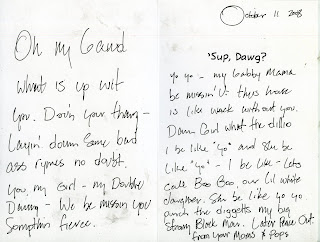 Oh my Gawd
what is up wit
you. Doin your thang -
Layin' down Some bad
ass rymes no doubt.
You, my Girl - my Double
- We be missin you
Somptin fierce.
October 11 2008
'Sup, Dawg?
yo yo - my Gabby Mama
be missin' U. this house
is like wack without you.
Damn Girl what the dillio
I be like yo and She be
like "yo" - I be like - Lets
call Boo Boo, our Lil white
daughter. She be like yo yo
and the diggets my big
Strong Black Man. Later Peace Out.
from your Moms & Pops